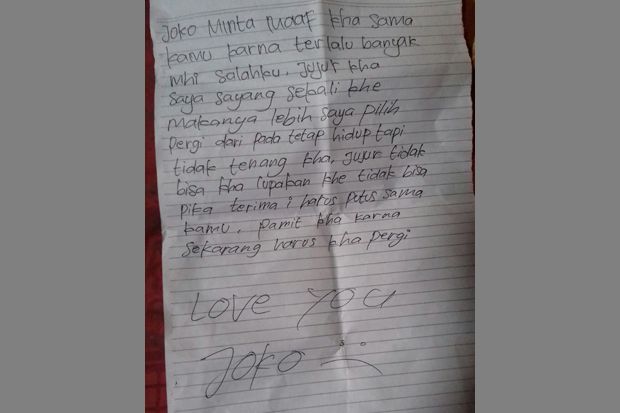 Joko Minta Maaf kha sama
kamu karna terlalu banyak
mhi salahku. Jujur kha
saya sayang sekali khe
Makanya lebih saya pilih
pergi dari pada tetap hidup tapi
tidak tenang kha, Jujur tidak
bisa kha lupakan khe tidak bisa
pika terima i harus putus sama
kamu. Pamit kha karna
sekarang harus kha pergi
LOVE YOU
JOKO